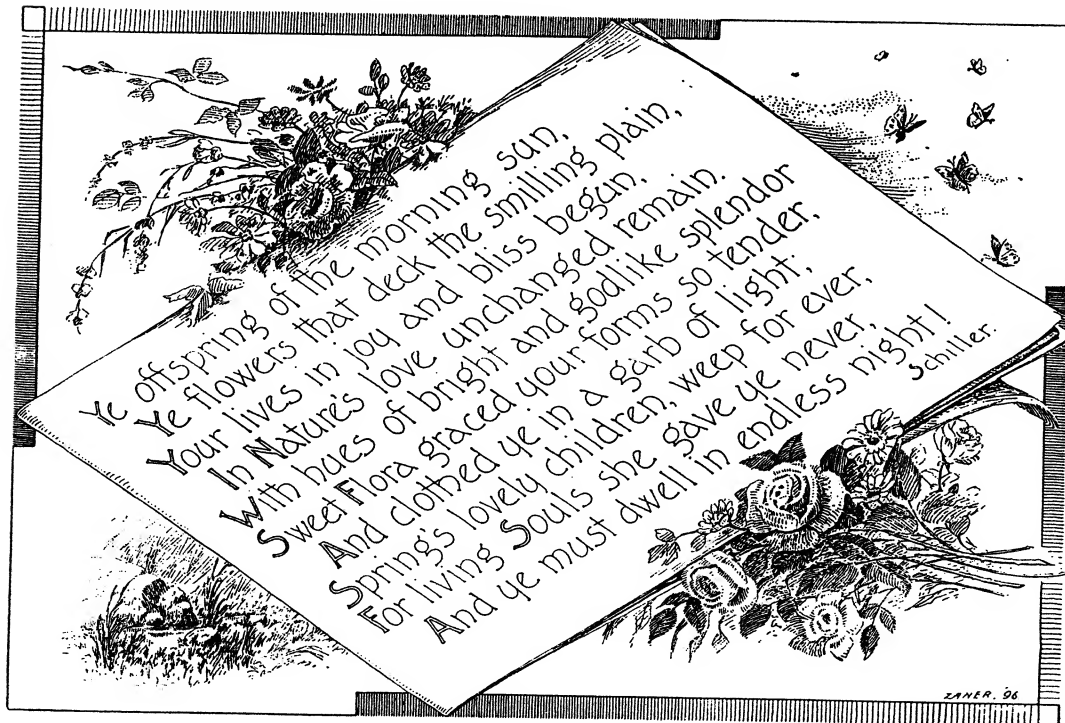 Ye offspring of the morning sun,
Ye flowers that deck the smilling plain,
Your lives in joy and bliss begun.
In Nature's love unchanged remain.
With hues of bright and godlike splendor
Sweet Flora graced your forms so tender,
And clothed ye in a garb of light;
Spring's lovely children, weep for ever,
For living Souls she gave ye never,
And ye must dwell in endless night!
Schiller.
ZANER. '96